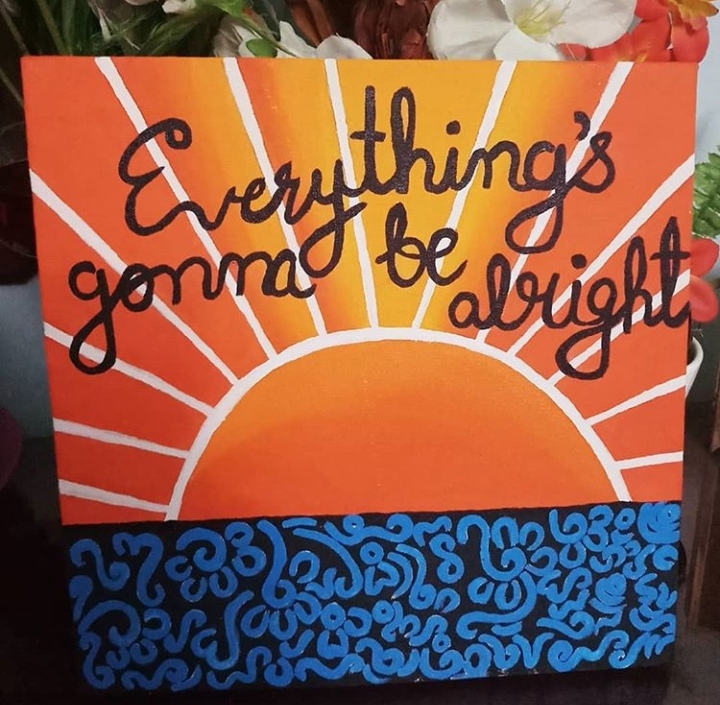 Everything's
gonna be alright